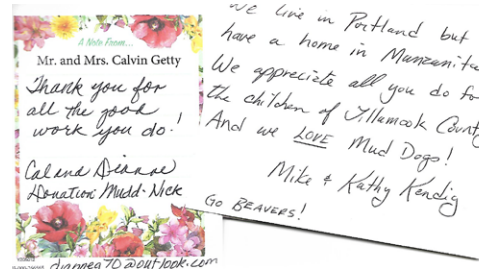 A Note From...
Mr. and Mrs. Calvin Getty
Thank you for
all the good
work you do!
Cal and Dianne
Donation Mudd-Nick
diannea70@outlook.com
We live in Portland but
have a home in Manzanita
We appreciate all you do for
the children of Tillamook County
And we LOVE Mud Dogs!
Mike & Kathy Kendig
GO BEAVERS!